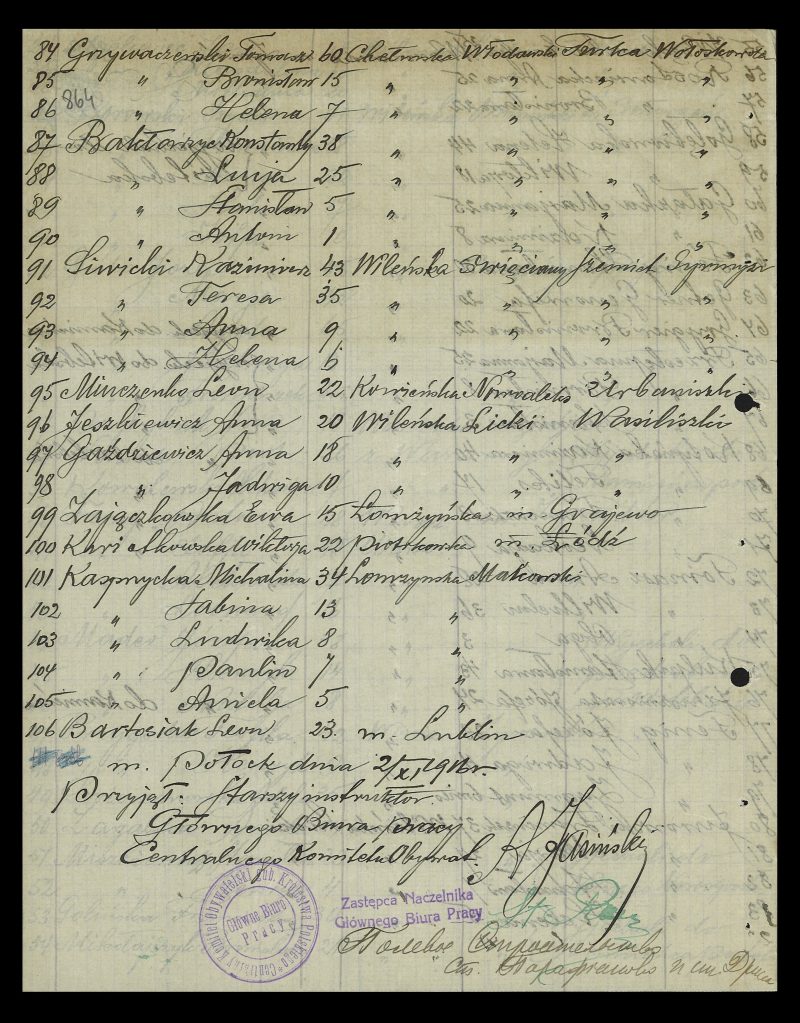 84 Grzywaczewski Tomasz 60 Chełmska Włodawski Turka Wołoskowola
85 " Bronisław 15 " " " "
86 864 " Helena 7 " " " "
87 Konstanty 38 " " " "
88 " Luija 25 " " " "
89 " Stanisław 5 " " " "
90 " Antoni 1 " " " "
91 Siwicki Kazimierz 43 Wileńska Święciany
92 " Teresa 35 " " " "
93 " Anna 9 " " " "
94 " Helena 6 " " " "
95 Minczenko Leon 22 Kowieńska Urbaniszki
96 Jeszkiewicz Anna 20 Wileńska Lidzki Wasiliszki
97 Gaździewicz Anna 18 " " "
98 " Jadwiga 10 " " "
99 Zajączkowska Ewa 15 Łomżyńska m. Grajewo
100 Wiktorja 22 Piotrkowska m. Łódź
101 Michalina 34 Łomżynska Makowski
102 " Sabina 13 "
103 " Ludwika 8 "
104 " Paulin 7 "
105 " Aniela 5 "
106 Bartosiak Leon 23. m. Lublin
m. Połock dnia 2/XI 1916 r.
Przyjął: Starszy instruktor
Głównego Biura Pracy
Centralnego Komitetu Obywat. A Jasiński
Centralny Komitet Obywatelski Gub. Królestwa Polskiego
Główne Biuro Pracy
Zastępca Naczelnika
Głównego Biura Pracy
Полевое Строительство
ст. и ст. Дрисса